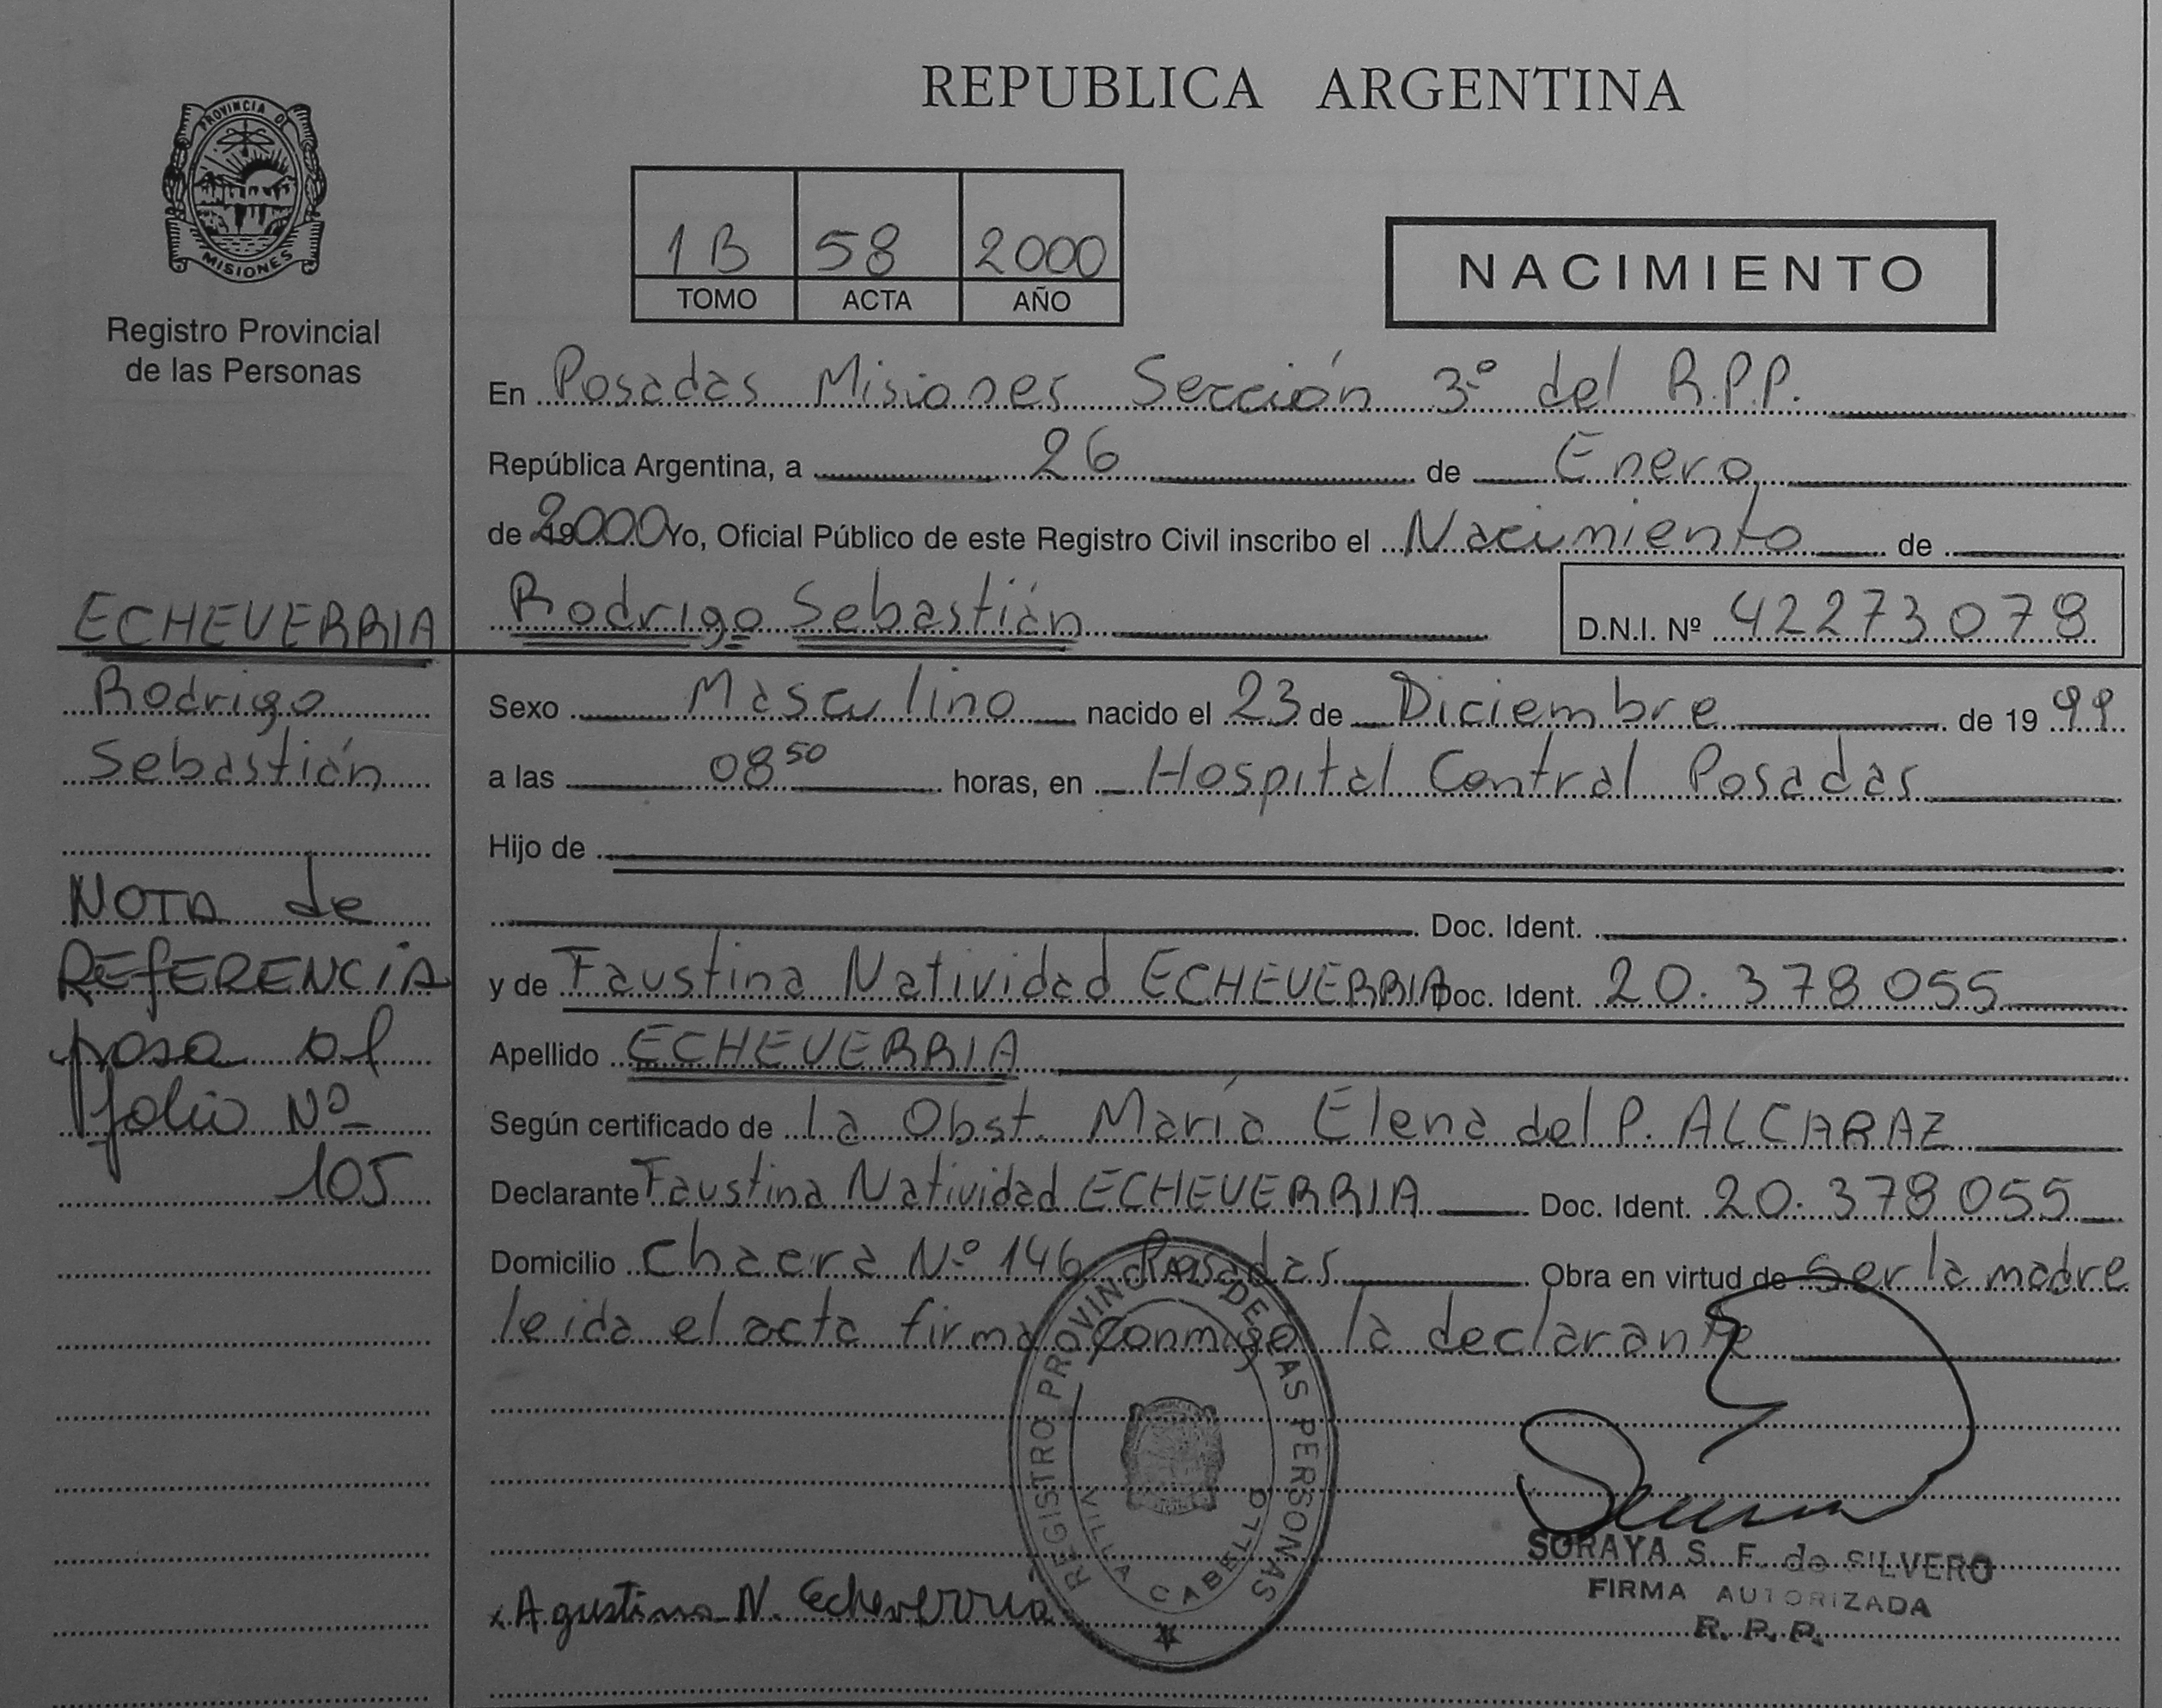 REPUBLICA ARGENTINA
PROVINCIA DE
MISIONES
Registro Provincial
de las Personas
1B 58 2000
TOMO ACTA AÑO
NACIMIENTO
En Posadas Misiones Sección 3º del R.P.P.
República Argentina, a 26 de Enero
de 2000 Yo, Oficial Público de este Registro Civil inscribo el Nacimiento de
Rodrigo Sebastián D.N.I. Nº 42273078
ECHEVERRIA
Rodrigo
Sebastián
NOTA de
REFERENCIA
pasa al
folio Nº
105
Sexo Masculino nacido el 23 de Diciembre de 1999
a las 08 50 horas, en Hospital Central Posadas
Hijo de
Doc. Ident.
y de Faustina Natividad ECHEVERRIA Doc. Ident. 20.378055
Apellido ECHEVERRIA
Según certificado de la Obst. María Elena del P. ALCARAZ
Declarante Faustina Natividad ECHEVERRIA Doc. Ident. 20.378055
Domicilio Chacra Nº 146 Posadas Obra en virtud de ser la madre
leida el acta firma conmigo la declarante
REGISTRO PROVINCIAL DE LAS PERSONAS
VILLA CABELLO
SORAYA S. F. de SILVERO
FIRMA AUTORIZADA
R. P. P.
x Agustina N. Echeverria